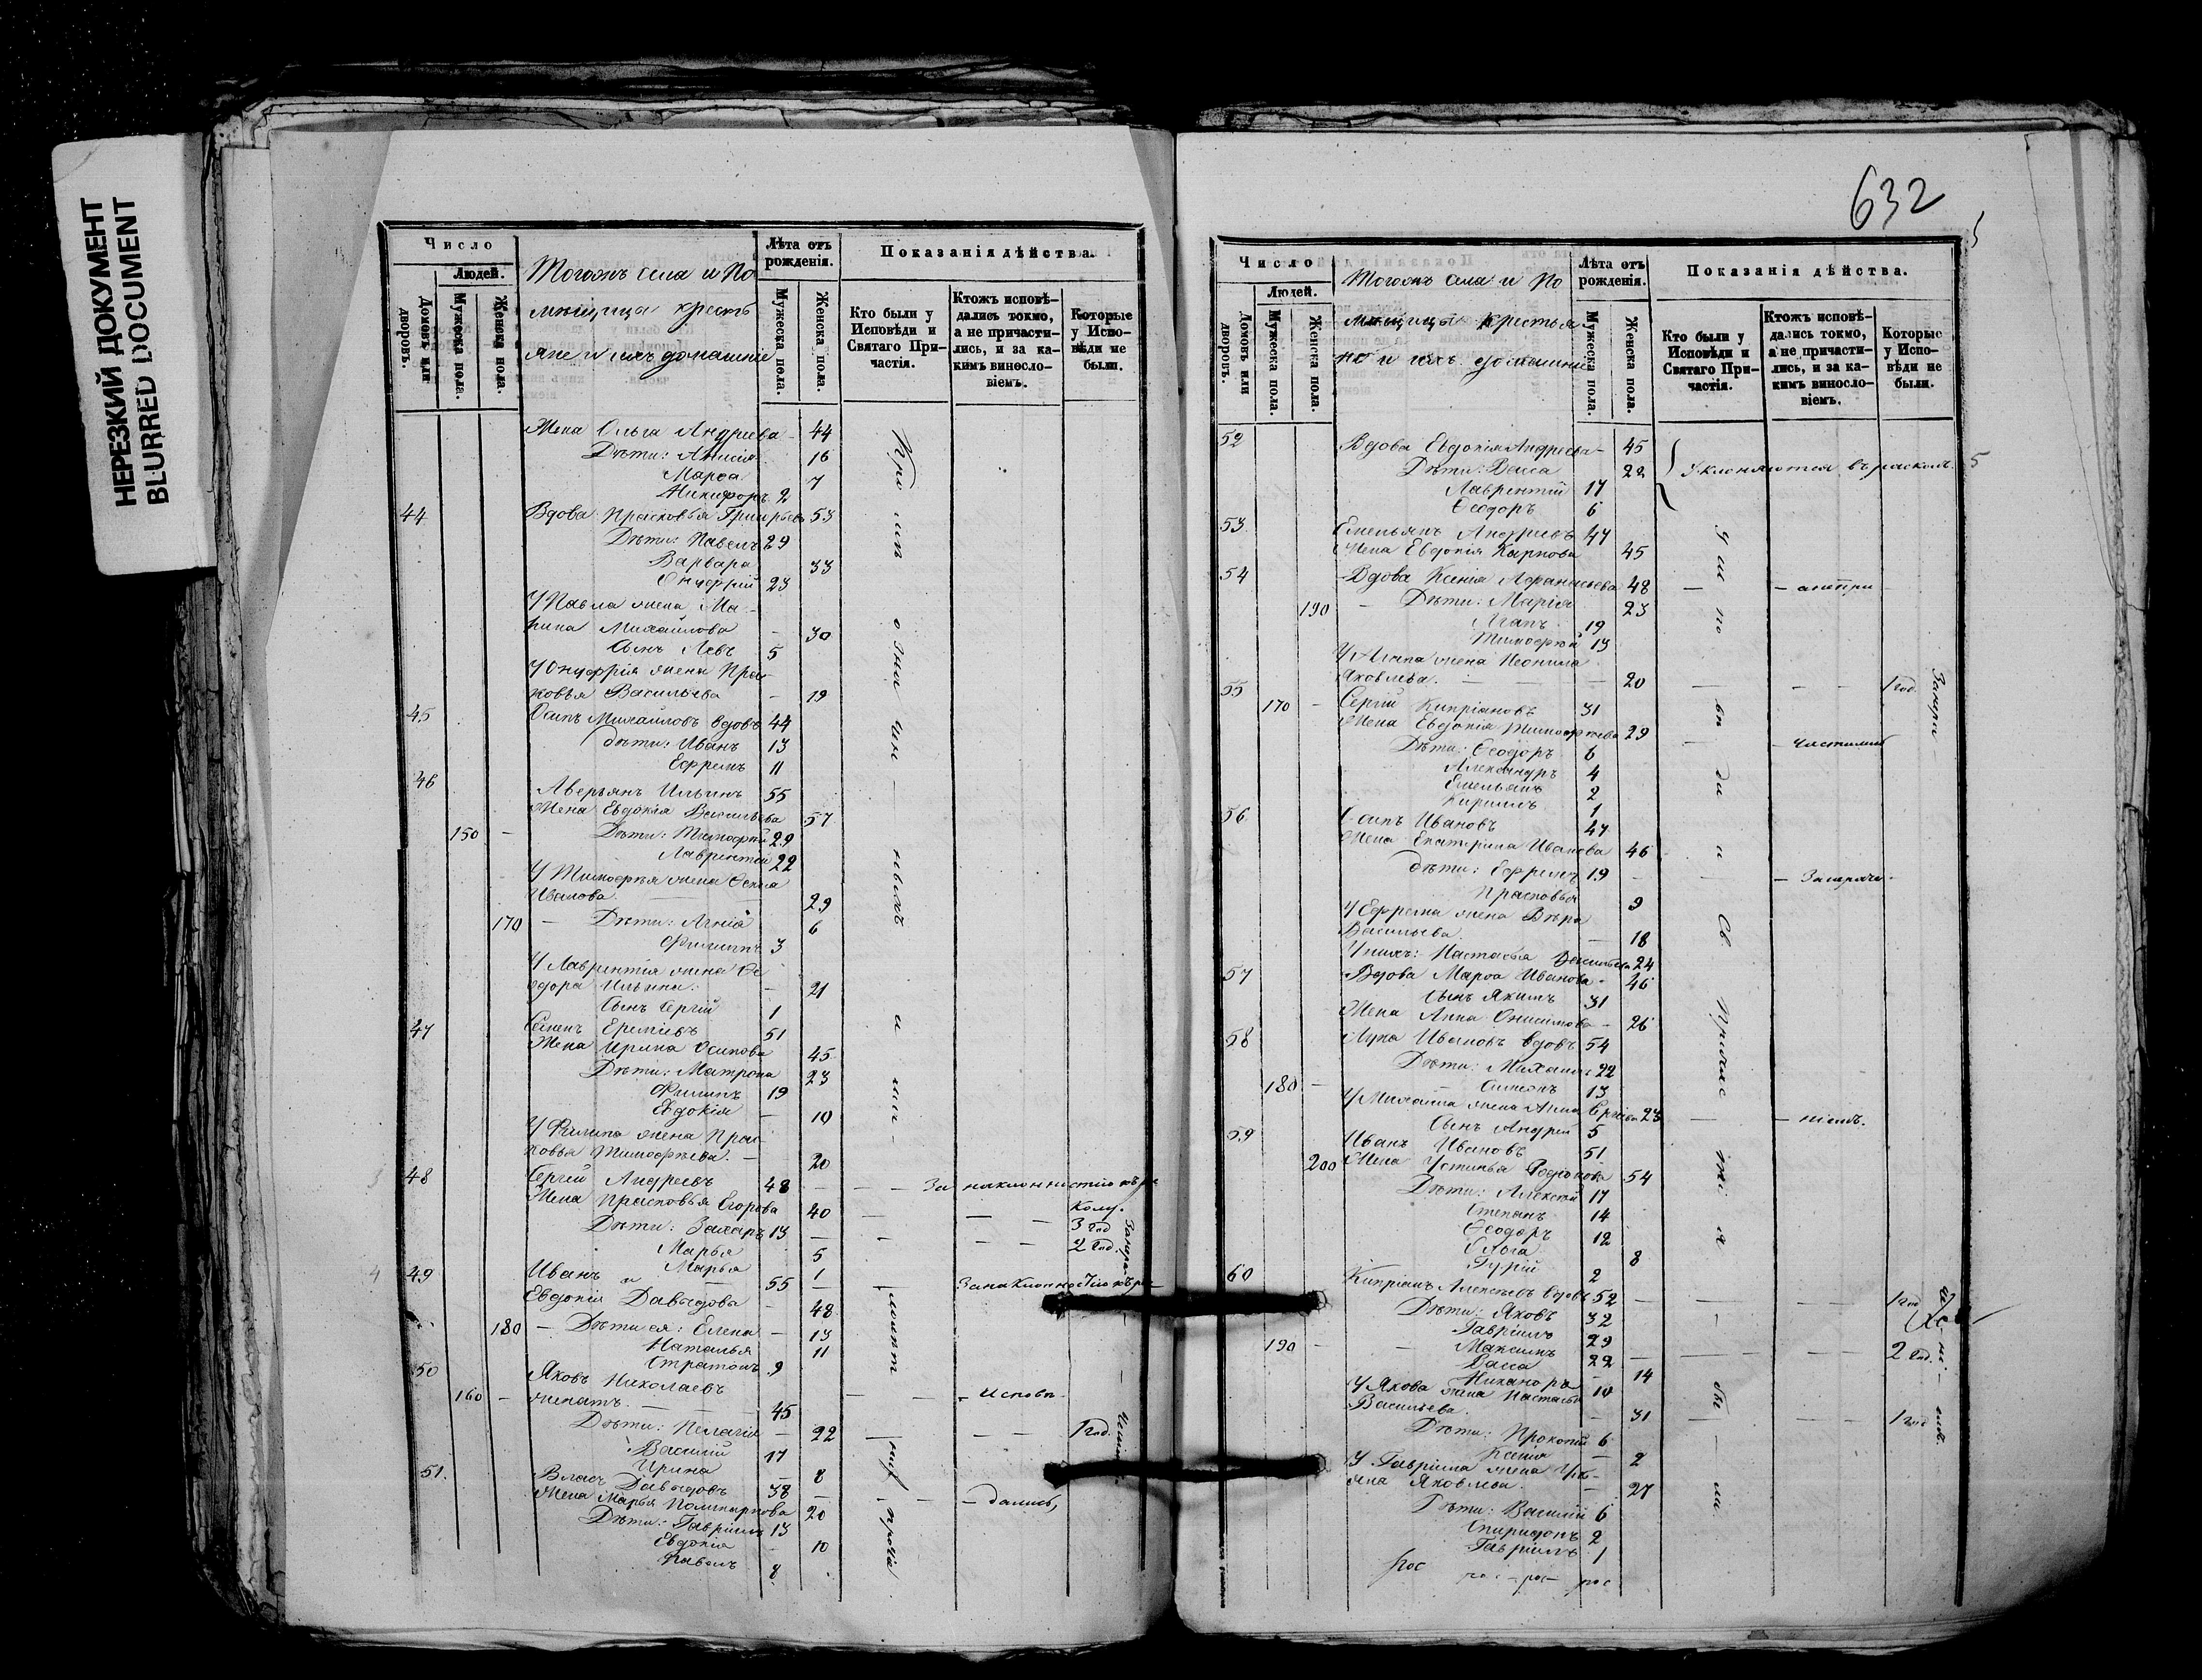 НЕРЕЗКИЙ ДОКУМЕНТ
BLURRED DOCUMENT
Число
Людей.
Домовъ или дворовъ.
Мужеска пола.
Женска пола.
Тогожъ села и По
мѣщица кресть
яне и ихъ домашніе
Лѣта отъ рожденія.
Мужеска пола.
Женска пола.
Показанія дѣйства.
Кто были у Исповѣди и Святаго Причастія.
Ктожъ исповѣдались токмо, а не причастились, и за какимъ винословіемъ.
Которые у Исповѣди не были.
Жена Ольга Андреева - 44
Дѣти: Анисія 16
Марѳа 7
Никифоръ 2
44 Вдова Прасковья Григорьева 53
Дѣти: Павелъ 29
Варвара 33
Онуфрій 23
У Павла жена Ма-
рина Михайлова - 30
Сынъ Левъ 5
У Онуфрія жена Прас-
ковья Васильева - 19
45 Осипъ Михайловъ вдовъ 44
Дѣти: Иванъ 13
Ефремъ 11
46 Аверьянъ Ильинъ 55
Жена Евдокія Васильева 57
150 - Дѣти: Тимофей 29
Лаврентій 22
У Тимофея жена
Иванова. 29
170 - Дѣти: Агнія 6
Филиппъ 3
У Лаврентія жена Ѳе
одора Ильина: - 21
Сынъ Сергій 1
47 Семенъ Еремѣевъ 51
Жена Ирина Осипова 45
Дѣти: Матрона 23
Филипъ 19
Евдокія - 10
У Филипа жена Прас
ковья Тимофеева. - 20
48 Сергей Андреевъ 48 - - За наклонностію къ рас
Жена Прасковья Егорова 40 - - - колу.
Дѣти: Захаръ 13 - - - 3 год
Марья 5 - - 2 год.
Марья 1
49 Иванъ 55 - За наклонностію къ рас
Евдокія Давыдова - 48
180 - Дѣти ея: Елена - 13
Наталья 11
Стратонъ 9
50 Яковъ Николаевъ
160 - женатъ. 45 - - - Исповѣ-
Дѣти: Пелагія - 22 - - 1 год.
Василій 17
Ирина - 8
51. Власъ Давыдовъ 38 - - - дались,
Жена Марья Поликарпова 20
Дѣти: Гавріилъ 13
Евдокія - 10
Павелъ 8
632
Число
Людей.
Домовъ или дворовъ.
Мужеска пола.
Женска пола.
Тогожъ села и По
мѣщицы крестья
не и ихъ домашніе
Лѣта отъ рожденія.
Мужеска пола.
Женска пола.
Показанія дѣйства.
Кто были у Исповѣди и Святаго Причастія.
Ктожъ исповѣдались токмо, а не причастились, и за какимъ винословіемъ.
Которые у Исповѣди не были.
52 Вдова Евдокія Андреева - 45
Дѣти: Васса 22 Уклоняются въ расколъ. 5
Лаврентій 17
Ѳеодоръ 6
53 Емельянъ Андреевъ 47
Жена Евдокія Карпова 45
54 Вдова Ксенія Афанасьева 48 - - а непри
190 - Дѣти: Марія 23
Агапъ 19
Тимофей 13
У Агапа жена Неонила
Яковлева. - - 20 - - - 1 год.
55 170 - Сергій Кипріановъ 31
Жена Евдокія Тимофеева 29 - - частились
Дѣти: Ѳеодоръ 6
Александръ 4
Емельянъ 2
Кириллъ 1
56 Осипъ Ивановъ 47
Жена Екатерина Иванова 46
Дѣти: Ефремъ 19 - - -
Прасковья 9
У Ефрема жена Вѣра
Васильева. - 18
У нихъ: Настасья Васильева 24
57 Вдова Марѳа Иванова - 46
Сынъ Якимъ 31
Жена Анна Онисимова - 26
58 Лука Ивановъ вдовъ 54
Дѣти: Михаилъ 22
180 - Симеонъ 13
У Михаила жена Анна Сергіева 23 - - ніемъ.
Сынъ Андрей 5
59 Иванъ Ивановъ 51
200 Жена Устинья Родіонова 54
Дѣти: Алексій 17
Степанъ 14
Ѳеодоръ 12
Ольга 8
Гурій 2
60 Кипріанъ Алексѣевъ вдовъ 52 - - - 1 год
Дѣти: Яковъ 32
Гавріилъ 29
190 - - Максимъ 22 - - - 2 год.
Васса - 14
Никаноръ 10
У Якова жена Настасья
Васильева. - 31 - - - 1 год
Дѣти: Прокопій 6
Ксенія - 2
У Гавріила жена
Яковлева. - 27
Дѣти: Василій 6
Спиридонъ 2
Гавріилъ 1